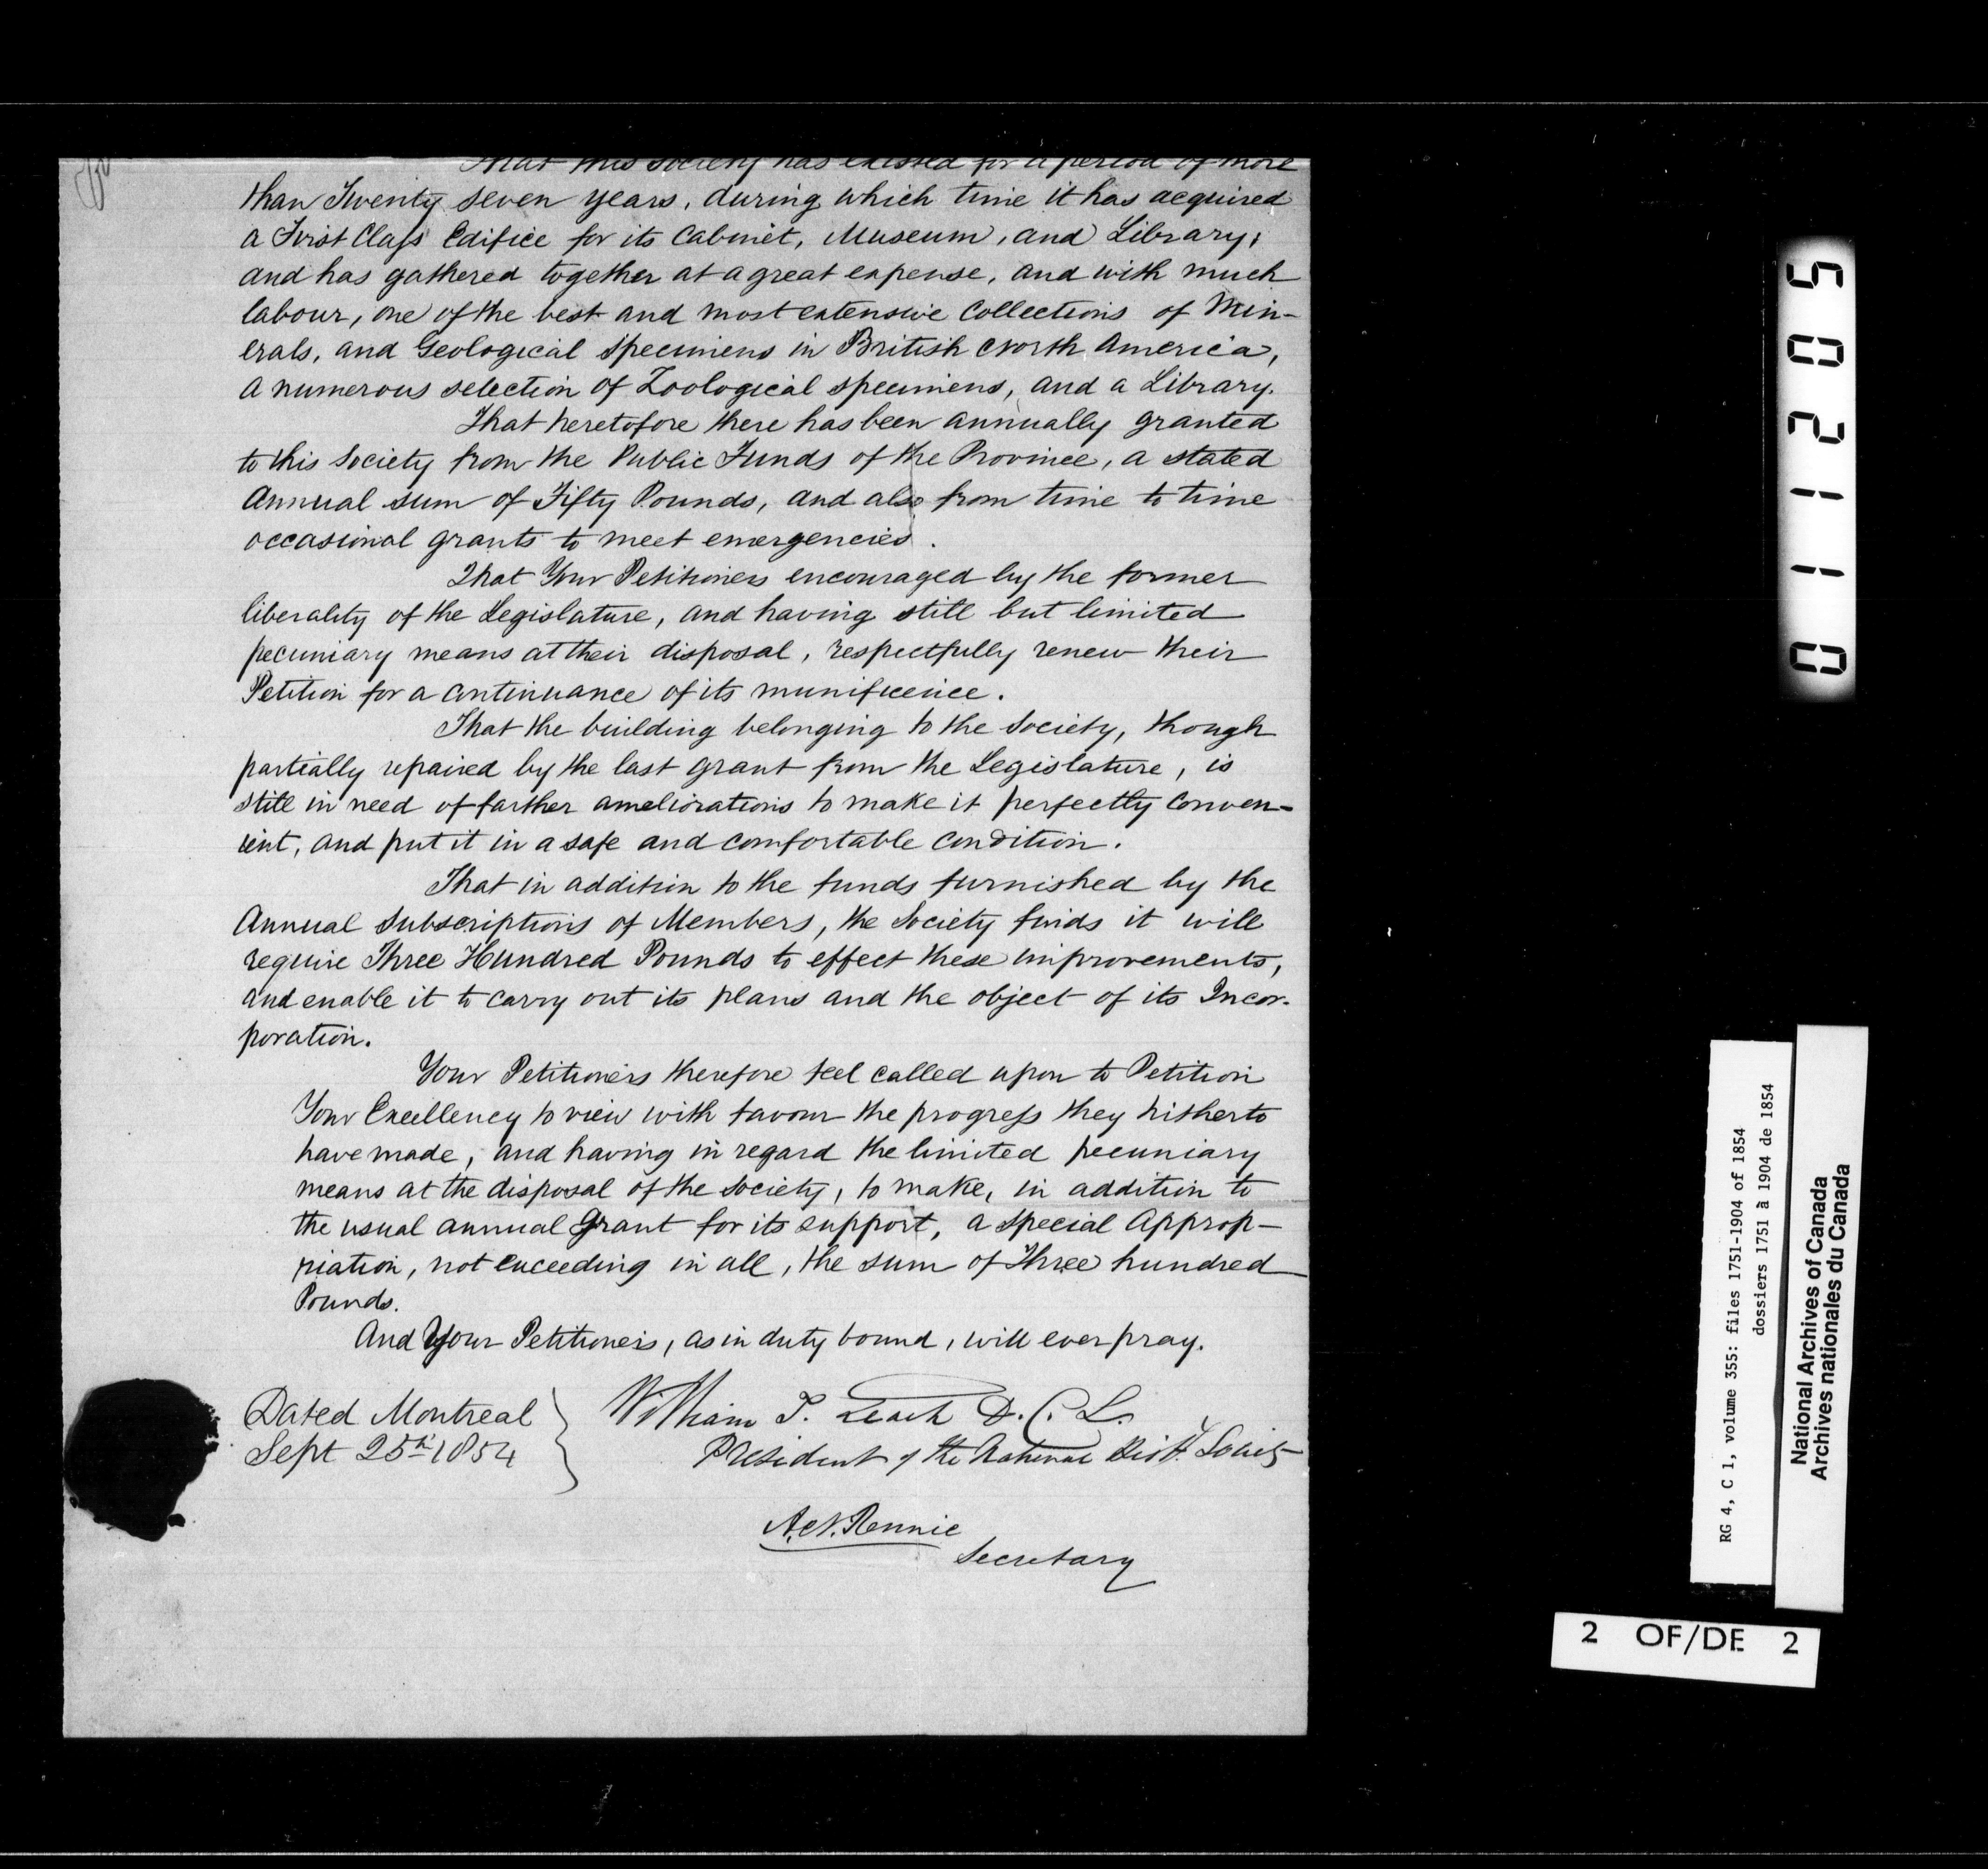 That this Society has existed for a period of more
than Twenty seven years, during which time it has acquired
a First Class Edifice for its Cabinet, Museum, and Library,
and has gathered together at a great expense, and with much
labour, one of the best and most extensive Collections of Min-
erals, and Geological specimens in British North America,
a numerous selection of Zoological specimens, and a Library.
That heretofore there has been annually granted
to this Society from the Public Funds of the Province, a stated
Annual sum of Fifty Pounds, and also from time to time
occasional grants to meet emergencies.
That Your Petitioners encouraged by the former
liberality of the Legislature, and having still but limited
pecuniary means at their disposal, respectfully renew their
Petition for a continuance of its munificence.
That the building belonging to the Society, though
partially repaired by the last grant from the Legislature, is
still in need of farther ameliorations to make it perfectly conven-
ient, and put it in a safe and comfortable condition.
That in addition to the funds furnished by the
Annual Subscriptions of Members, the Society finds it will
require Three Hundred Pounds to effect these improvements,
and enable it to carry out its plans and the object of its Incor-
poration.
Your Petitioners therefore feel called upon to Petition
Your Excellency to view with favour the progress they hitherto
have made, and having in regard the limited pecuniary
means at the disposal of the Society, to make, in addition to
the usual annual Grant for its support, a special Approp-
riation, not exceeding in all, the sum of three hundred
Pounds.
And Your Petitioners, as in duty bound, will ever pray.
Dated Montreal
Sept 25th 1854
William T. Leach D.C.L.
President of the Natural Hist. Society
A.N. Rennie
Secretary
011205
RG 4, C 1, volume 355: files 1751-1904 of 1854
dossiers 1751 à 1904 de 1854
National Archives of Canada
Archives nationales du Canada
2 OF/DE 2